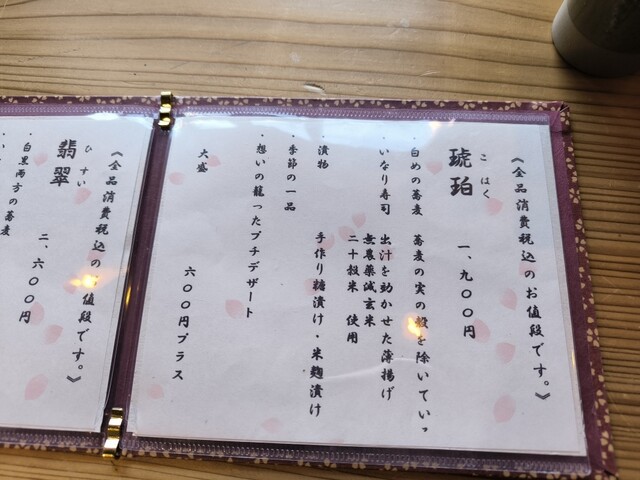 《全品消費税込のお値段です。》
こはく
琥珀 一、九〇〇円
・白めの蕎麦 蕎麦の実の殻を除いていっ
・いなり寿司 出汁を効かせた薄揚げ
無農薬減玄米
二十穀米 使用
漬物 手作り糠漬け・米麹漬け
・季節の一品
・想いの籠ったプチデザート
大盛 六〇〇円プラス
《全品消費税込のお値段です。》
ひすい
翡翠 二、六〇〇円
・白黒両方の蕎麦